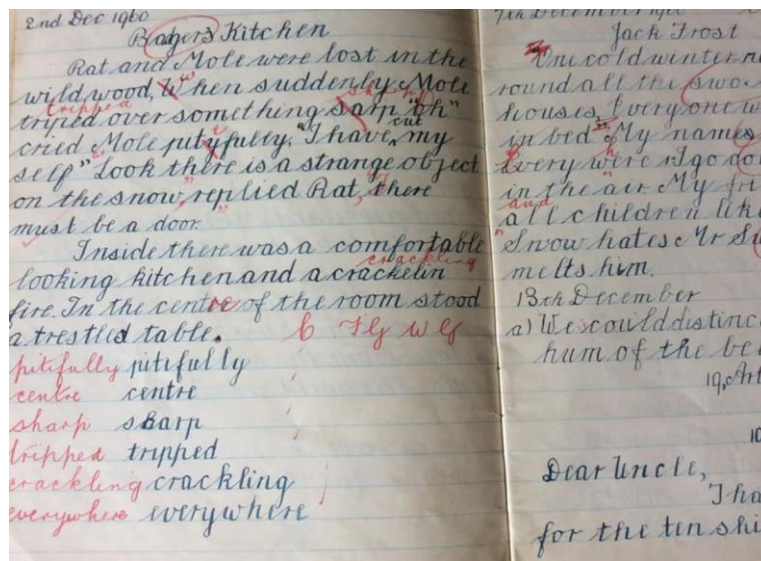 2nd Dec 1960
Bagers Kitchen
Rat and Mole were lost in the
wild wood, When suddenly Mole
tripped
triped over something sarp "Oh"
cried Mole pityfully. "I have cut my
self" "Look there is a strange object
on the snow," replied Rat, "there
must be a door."
Inside there was a comfortable
crackling
looking kitchen and a crackelin
fire. In the centre of the room stood
a trestled table.
pitifully pitifully
centre centre
sharp sharp
tripped tripped
crackling crackling
everywhere everywhere
7th December
Jack Frost
One cold winter n
round all the swo
houses, Everyone w
in bed "My names
Every were I go do
in the air. My fri
and
all children like
"Snow hates Mr Su
melts him.
13th December
a) We could distinc
hum of the be
19, Art
10
Dear Uncle,
I ha
for the ten shi